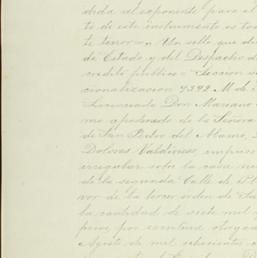 dida al esponente para el
to de este instrumento es
te tenor = Un sello que di
de Estado y del Despacho d
credito publico = Seccion
cionalizacion 9392. M de
Licenciado Don Mariano
mo apoderado de la Señora
de San Pedro del Alamo,
Dolores Valdivieso, impuso
irregular sobre la casa
de la segunda Calle de
vor de la tercer orden de
la cantidad de siete mil
pesos por escritura otorga
Agosto de mil ochocientos